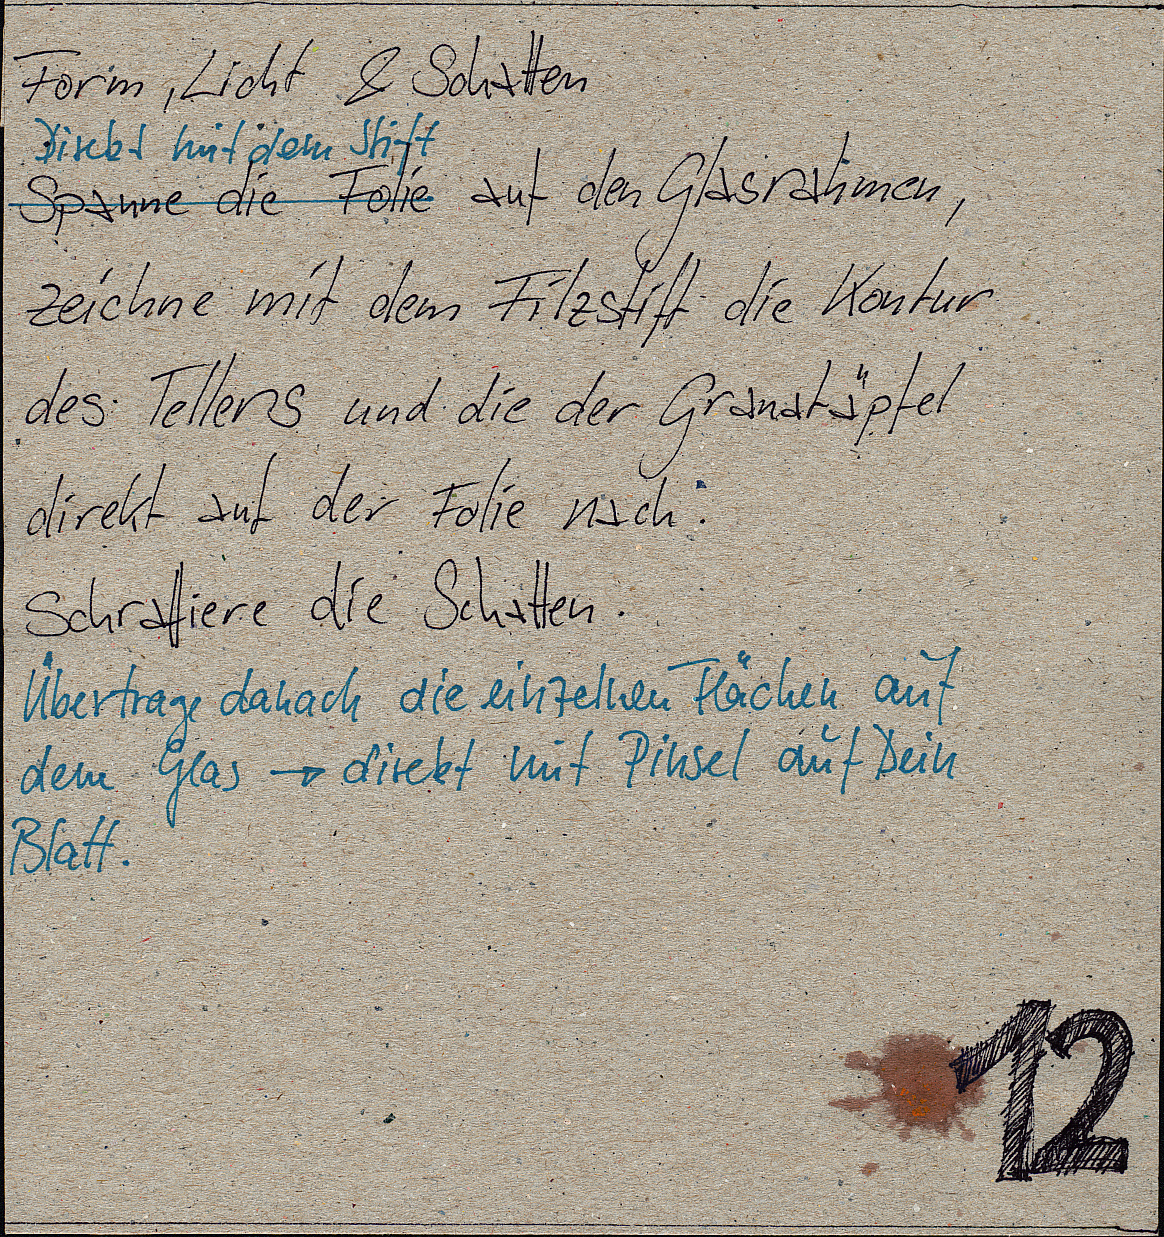 Form, Licht & Schatten
Direkt mit dem Stift
Spanne die Folie auf den Glasrahmen,
zeichne mit dem Filzstift die Kontur
des Tellers und die der Granatäpfel
direkt auf der Folie nach.
Schraffiere die Schatten.
Übertrage danach die einzelnen Flächen auf
dem Glas → direkt mit Pinsel auf Dein
Blatt.
12